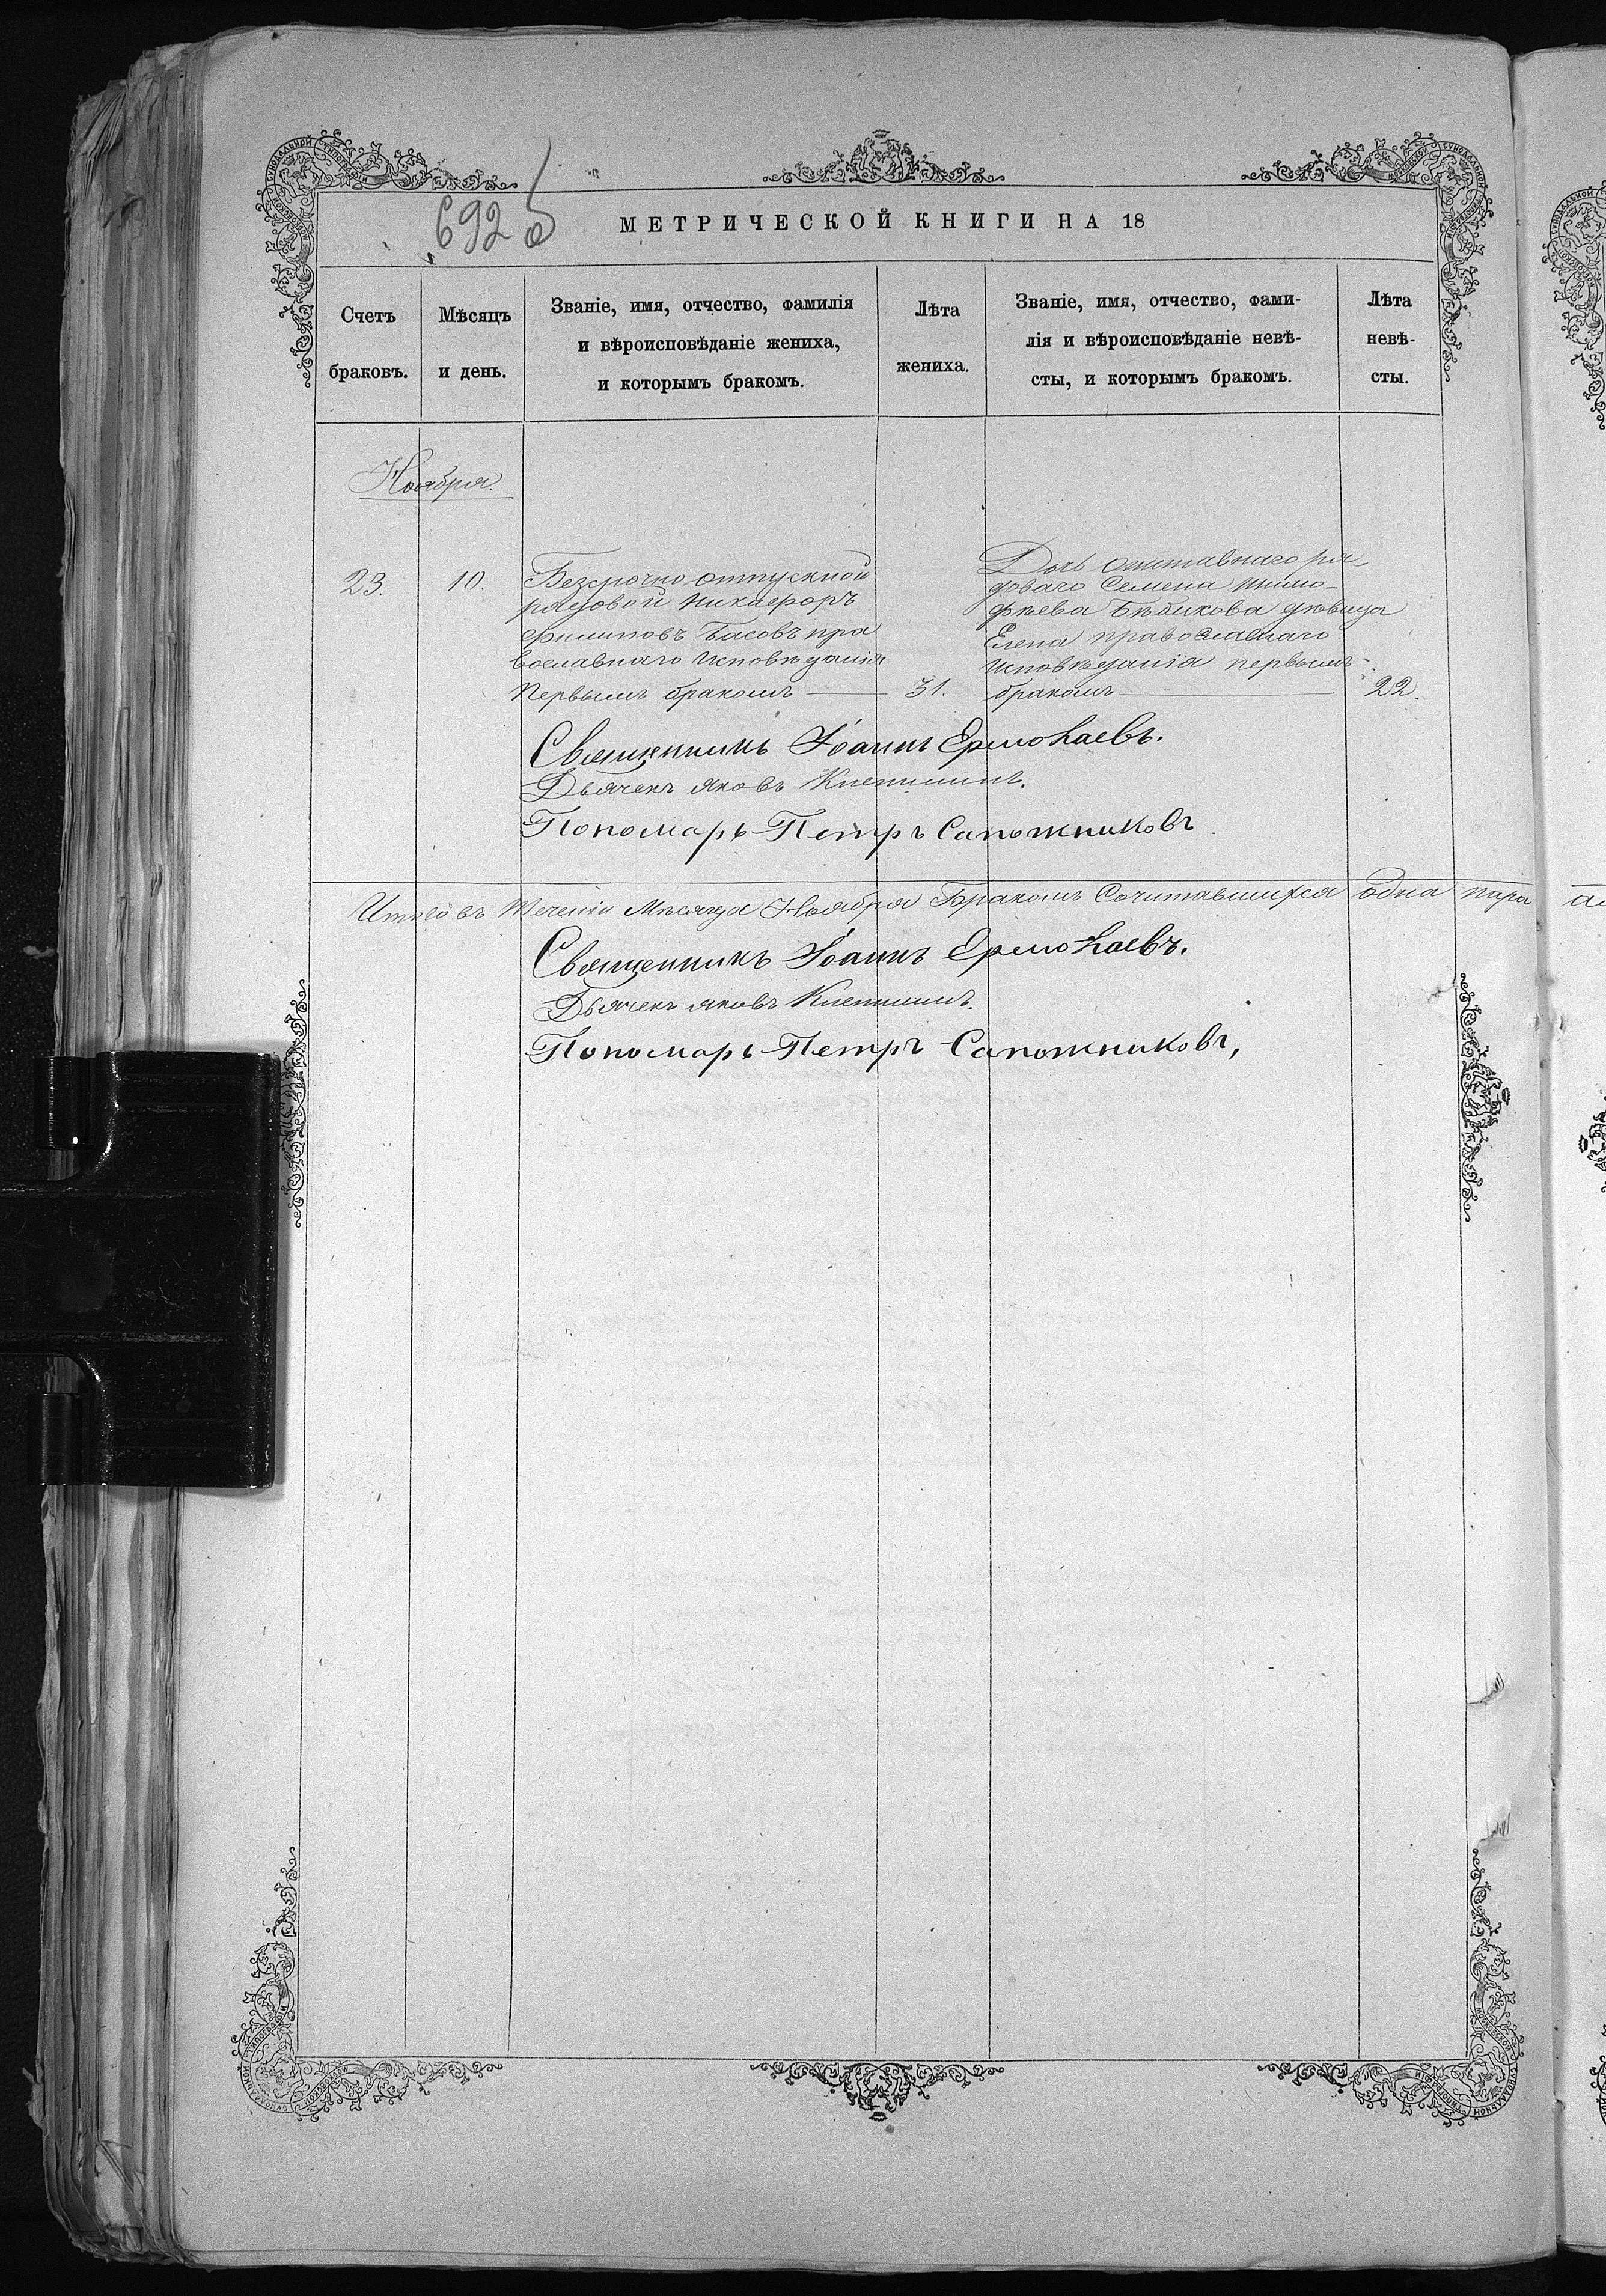 692 об
МЕТРИЧЕСКОЙ КНИГИ НА 18
Счетъ браковъ.
Мѣсяцъ и день.
Званіе, имя, отчество, фамилія
и вѣроисповѣданіе жениха,
и которымъ бракомъ.
Лѣта жениха.
Званіе, имя, отчество, фами-
лія и вѣроисповѣданіе невѣ-
сты, и которымъ бракомъ.
Лѣта невѣ-
сты.
Ноября.
23.
10.
Безсрочно отпускной
рядовой Никифоръ
Филиповъ Басовъ пра
вославнаго исповѣданія
первымъ бракомъ
31.
Дочь отставнаго ря
доваго Семена Тимо-
фѣева Бѣбикова дѣвица
Елена православнаго
исповѣданія первымъ
бракомъ
22.
Священникъ Іоаннъ Ермолаевъ.
Дьячекъ Яковъ Клепининъ.
Пономарь Петръ Сапожниковъ.
Итого въ теченіи мѣсяца Ноября Бракомъ Сочитавшихся одна пара
Священникъ Іоаннъ Ермолаевъ.
Дьячекъ Яковъ Клепининъ.
Пономарь Петръ Сапожниковъ,